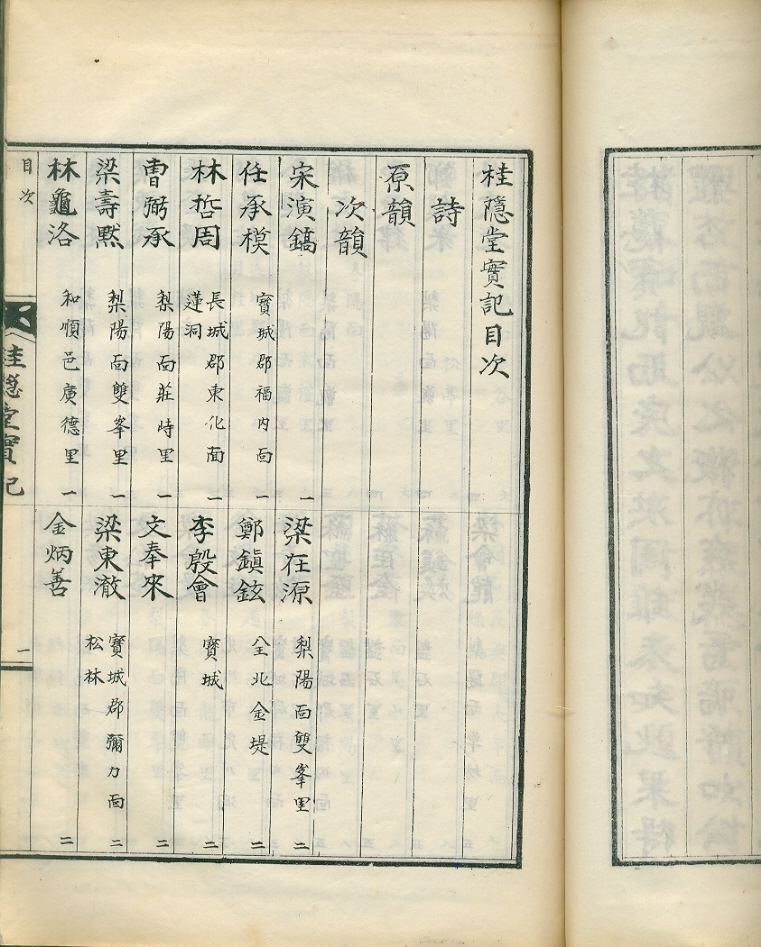 桂隱堂實記目次
詩
原韻
次韻
宋演鎬 一
梁在源 梨陽面雙峯里 二
任承模 寶城郡福內面 一
鄭鎭鉉 全北金堤 二
林哲周 長城郡東化面蓮洞 一
李殷會 寶城 二
曺弼承 梨陽面莊峙里 一
文奉來 二
梁壽黙 梨陽面雙峯里 一
梁東澈 寶城郡彌力面松林 二
林龜洛 和順邑廣德里 一
金炳善 二
目次
桂隱堂實記
一